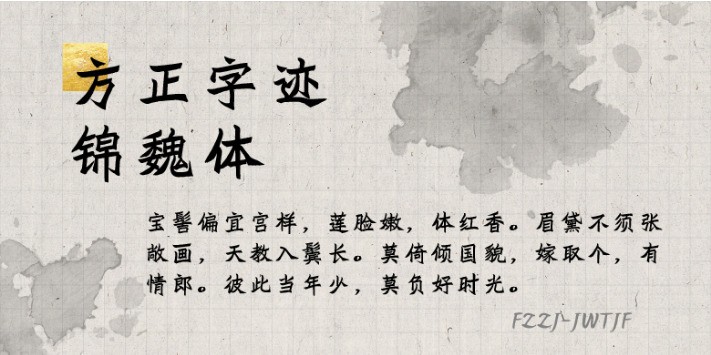 方正字迹
锦魏体
宝髻偏宜宫样，莲脸嫩，体红香。眉黛不须张
敞画，天教入鬓长。莫倚倾国貌，嫁取个，有
情郎。彼此当年少，莫负好时光。
FZZJ-JWTJF